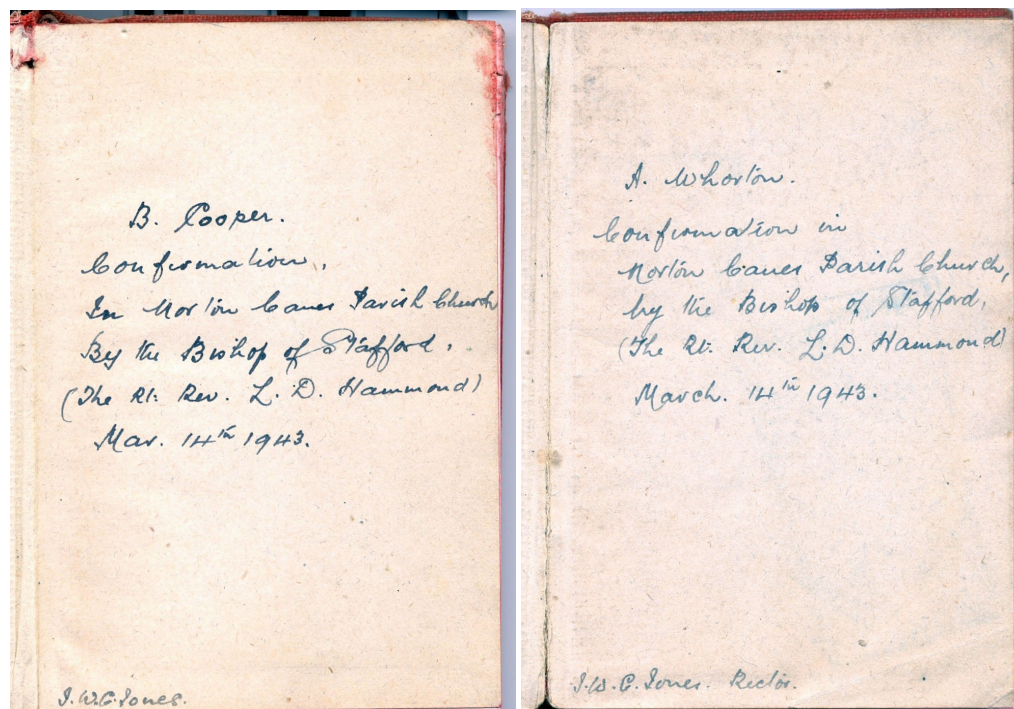 B. Cooper.
Confirmation,
In Norton Canes Parish Church
By the Bishop of Stafford.
(The Rt. Rev. L. D. Hammond)
Mar. 14th 1943.
J. W. G. Jones.
A. Whorton.
Confirmation in
Norton Canes Parish Church,
by the Bishop of Stafford,
(The Rt. Rev. L. D. Hammond)
March. 14th 1943.
J. W. G. Jones. Rector.